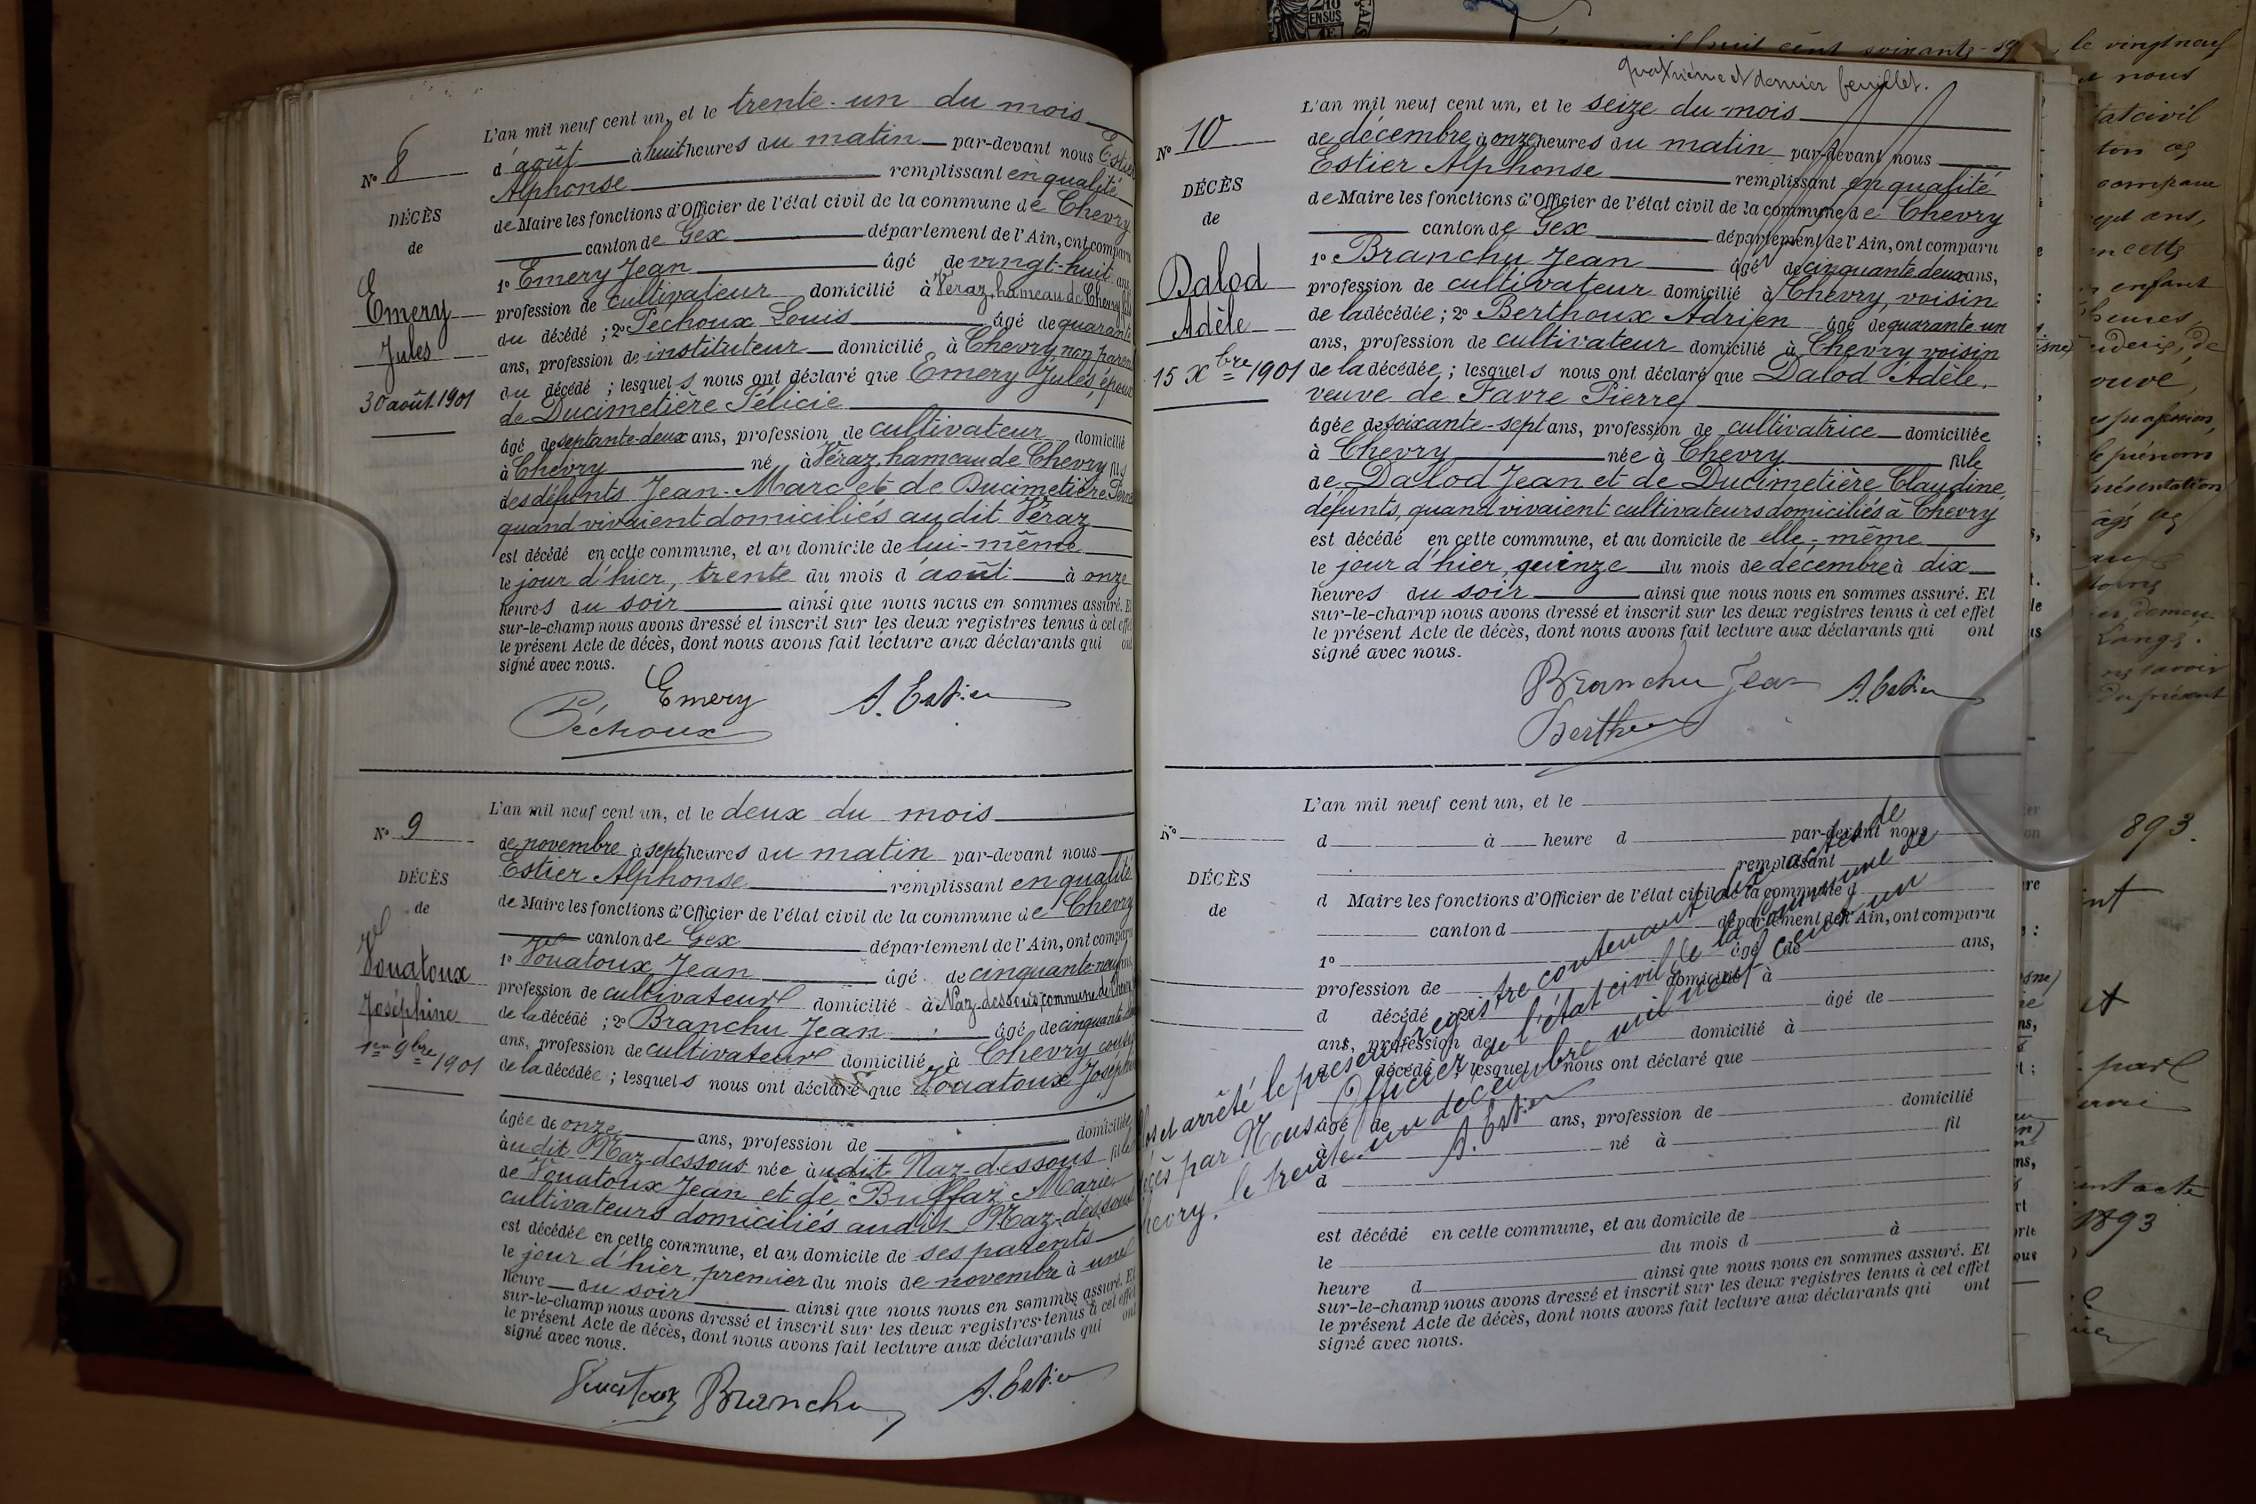 N° 8
DÉCÈS
de
Emery
Jules
30 août 1901
L'an mil neuf cent un, et le trente-un du mois
d'août à huit heures du matin par-devant nous Estier
Alphonse remplissant en qualité
de Maire les fonctions d'Officier de l'état civil de la commune de Chevry
canton de Gex département de l'Ain, ont comparu
1° Emery Jean âgé de vingt-huit ans,
profession de cultivateur domicilié à Véraz, hameau de Chevry, fils
du décédé ; 2° Péchoux Louis âgé de quarante
ans, profession de instituteur domicilié à Chevry, non parent
du décédé ; lesquels nous ont déclaré que Emery Jules, époux
de Ducimetière Félicie
âgé de septante-deux ans, profession de cultivateur domicilié
à Chevry né à Véraz, hameau de Chevry fils
des défunts Jean-Marc et de Ducimetière
quand vivaient domiciliés audit Véraz
est décédé en cette commune, et au domicile de lui-même
le jour d'hier, trente du mois d'août à onze
heures du soir ainsi que nous nous en sommes assuré. Et
sur-le-champ nous avons dressé et inscrit sur les deux registres tenus à cet effet
le présent Acte de décès, dont nous avons fait lecture aux déclarants qui ont
signé avec nous.
Emery A. Estier
Péchoux
N° 9
DÉCÈS
de
Vouatoux
Joséphine
1er 9bre 1901
L'an mil neuf cent un, et le deux du mois
de novembre à sept heures du matin par-devant nous
Estier Alphonse remplissant en qualité
de Maire les fonctions d'Officier de l'état civil de la commune de Chevry
canton de Gex département de l'Ain, ont comparu
1° Vouatoux Jean âgé de cinquante-neuf ans,
profession de cultivateur domicilié à Naz-dessous, commune de Chevry
de la décédée ; 2° Branchu Jean âgé de cinquante-deux
ans, profession de cultivateur domicilié à Chevry cousin
de la décédée ; lesquels nous ont déclaré que Vouatoux Joséphine
âgée de onze ans, profession de domiciliée
audit Naz-dessous née audit Naz-dessous fille
de Vouatoux Jean et de Buffaz Marie
cultivateurs domiciliés audit Naz-dessous
est décédée en cette commune, et au domicile de ses parents
le jour d'hier, premier du mois de novembre à une
heure du soir ainsi que nous nous en sommes assuré. Et
sur-le-champ nous avons dressé et inscrit sur les deux registres tenus à cet effet
le présent Acte de décès, dont nous avons fait lecture aux déclarants qui ont
signé avec nous.
Vouatoux Branchu A. Estier
quatrième et dernier feuillet.
N° 10
DÉCÈS
de
Dalod
Adèle
15 Xbre 1901
L'an mil neuf cent un, et le seize du mois
de décembre à onze heures du matin par-devant nous
Estier Alphonse remplissant en qualité
de Maire les fonctions d'Officier de l'état civil de la commune de Chevry
canton de Gex département de l'Ain, ont comparu
1° Branchu Jean âgé de cinquante deux ans,
profession de cultivateur domicilié à Chevry, voisin
de la décédée ; 2° Berthoux Adrien âgé de quarante-un
ans, profession de cultivateur domicilié à Chevry voisin
de la décédée ; lesquels nous ont déclaré que Dalod Adèle,
veuve de Favre Pierre
âgée de soixante-sept ans, profession de cultivatrice domiciliée
à Chevry née à Chevry fille
de Dalod Jean et de Ducimetière Claudine,
défunts, quand vivaient cultivateurs domiciliés à Chevry
est décédé en cette commune, et au domicile de elle-même
le jour d'hier, quinze du mois de decembre à dix
heures du soir ainsi que nous nous en sommes assuré. Et
sur-le-champ nous avons dressé et inscrit sur les deux registres tenus à cet effet
le présent Acte de décès, dont nous avons fait lecture aux déclarants qui ont
signé avec nous.
Branchu Jean A. Estier
Berthoux
N°
DÉCÈS
de
L'an mil neuf cent un, et le
d à heure d par-devant nous
remplissant
d Maire les fonctions d'Officier de l'état civil de la commune d
canton d département de l'Ain, ont comparu
1° âgé de ans,
profession de domicilié à
d décédé ; 2° âgé de
ans, profession de domicilié à
d décédé ; lesquel nous ont déclaré que
âgé de ans, profession de domicilié
à né à fil
d
est décédé en cette commune, et au domicile de
le du mois d à
heure d ainsi que nous nous en sommes assuré. Et
sur-le-champ nous avons dressé et inscrit sur les deux registres tenus à cet effet
le présent Acte de décès, dont nous avons fait lecture aux déclarants qui ont
signé avec nous.
et arrêté le présent registre contenant dix actes de
par Nous Officier de l'état civil de la commune de
le trente-un décembre mil neuf cent un
A. Estier
le vingt neuf
nous
enfant
heures
profession,
893.
1893